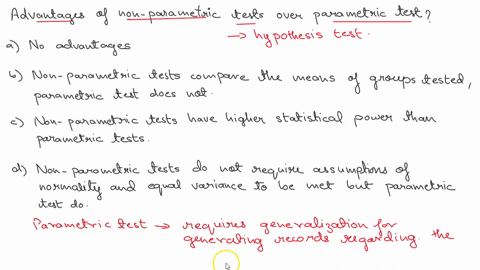 Advantages of non-parametric tests over parametric test?
→ hypothesis test.
a) No advantages
b) Non-parametric tests compare the means of groups tested,
parametric test does not.
c) Non-parametric tests have higher statistical power than
parametric tests.
d) Non-parametric tests do not require assumptions of
normality and equal variance to be met but parametric
test do.
Parametric test → requires generalization for
generating records regarding the